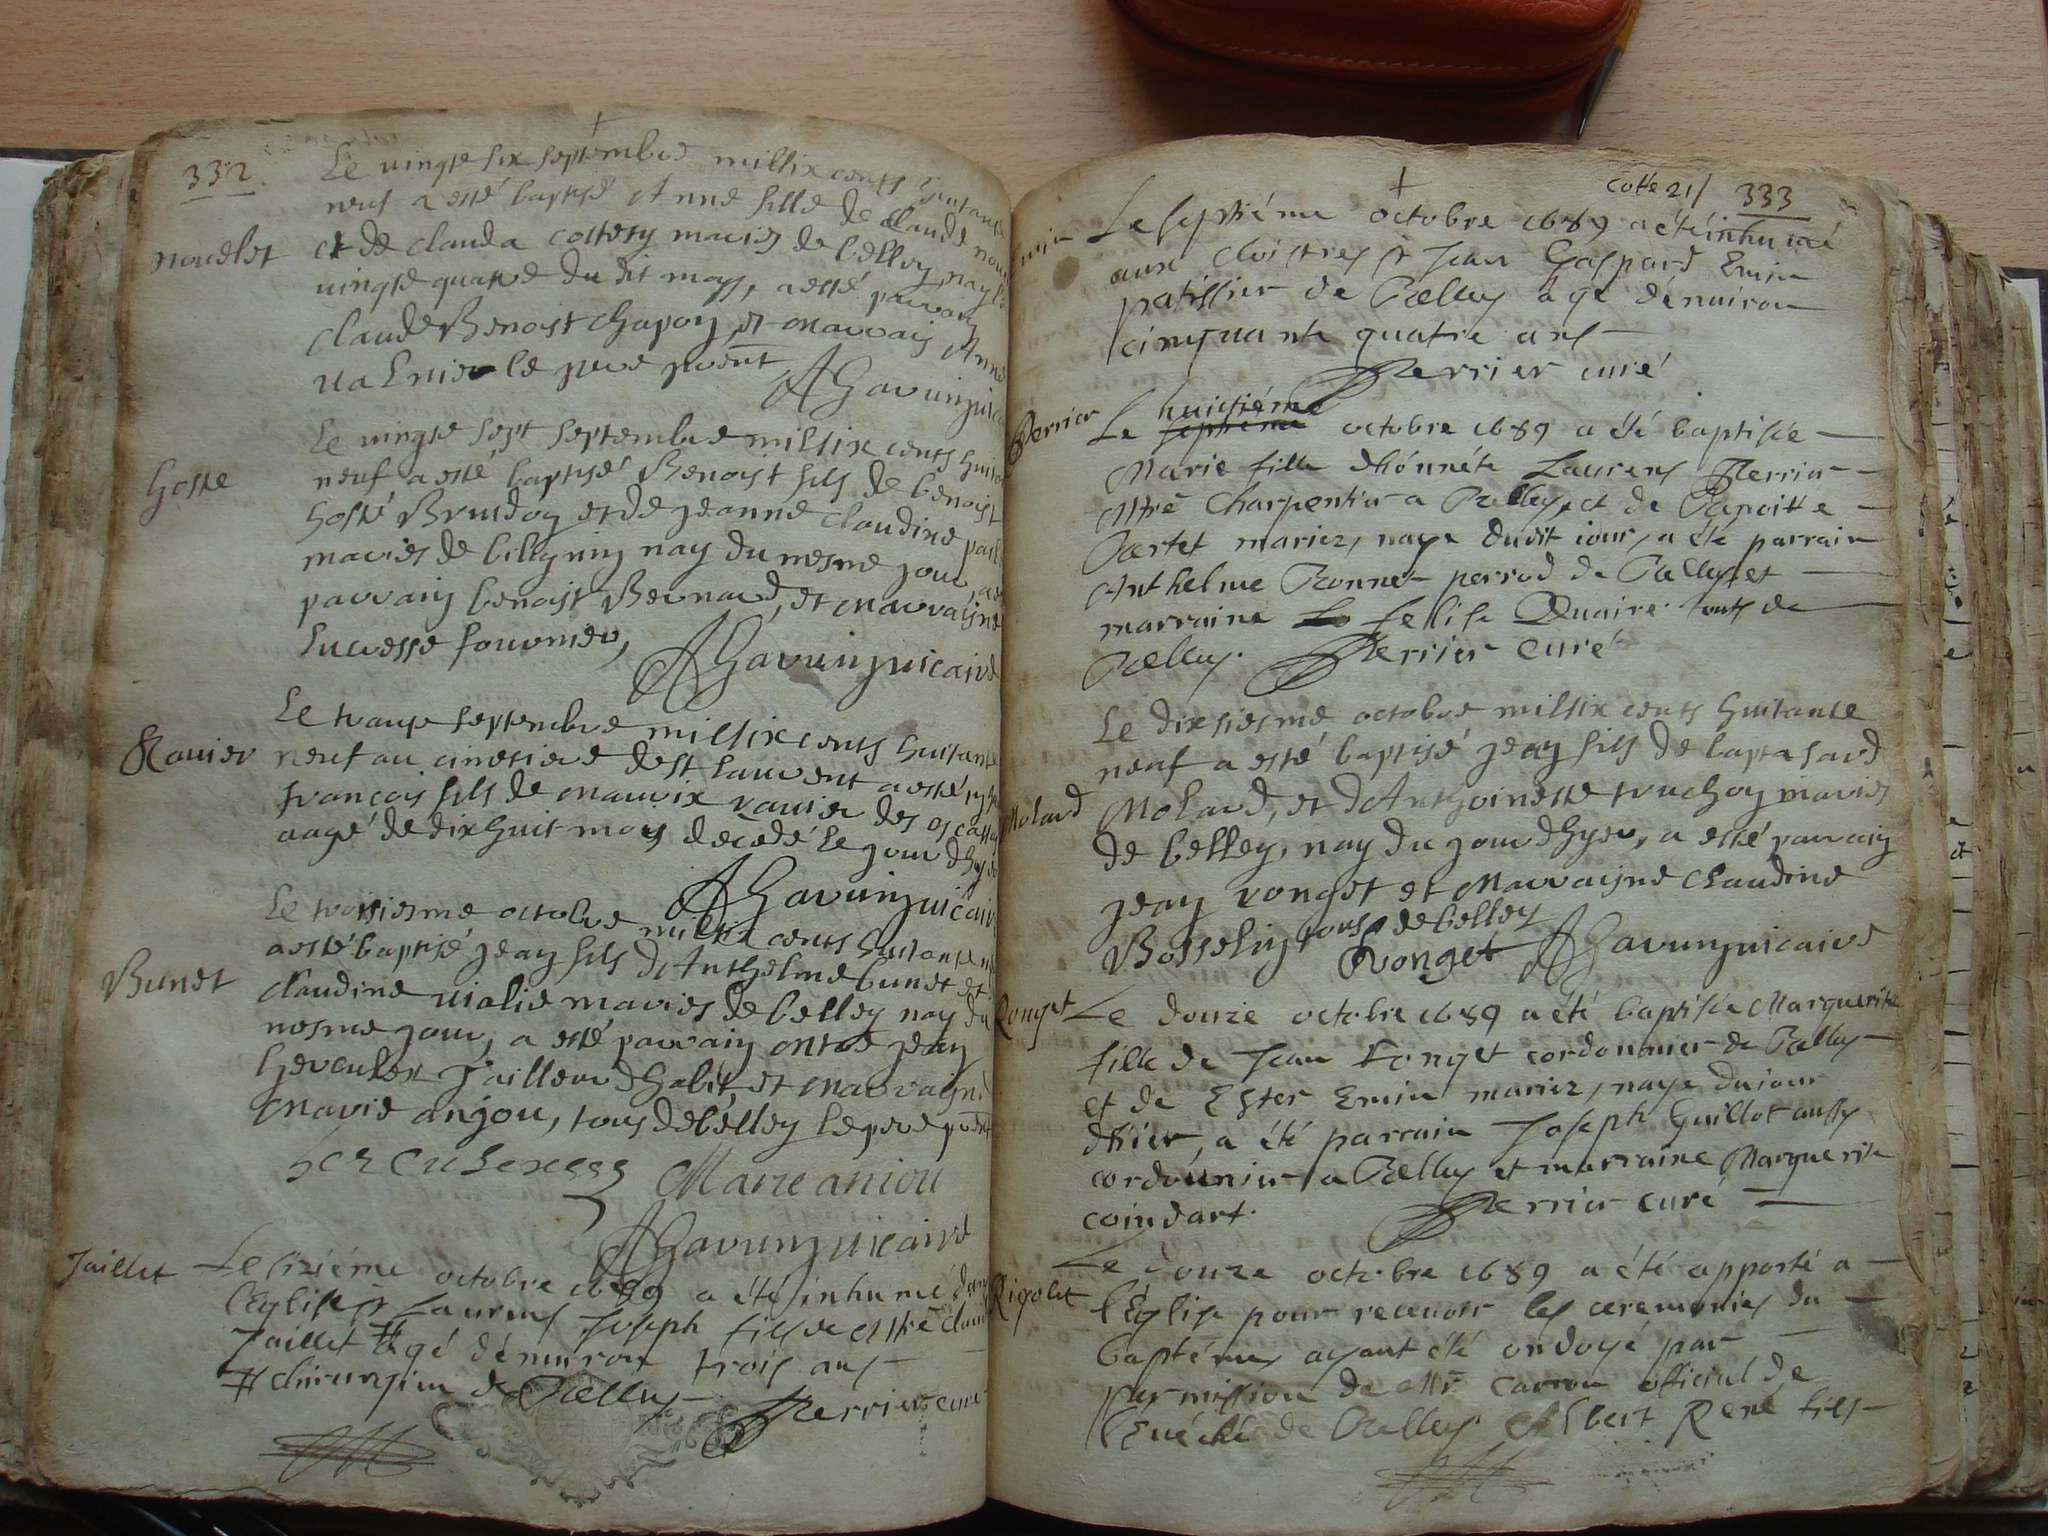 332
Le vingte six septembre mil six cents huitante
neuf a esté baptisé Anne fille de Claude
nouelet
et de clauda costesy maries de belley nay le
vingte quatre du dit moys, a esté parrain
Claude Benoist chapoy et marrain Anne
le pere pnt
AGavuinguicaire
Le vingte sept septembre mil six cents huita
neuf a esté baptisé Benoist fils de benoist
hoste
hoste et de jeanne claudine
maries de billignin nay du mesme jour, a
parrain benoist Bernard, et marraisne
Lucresse fournier,
AGavuinguicaire
Le trante septembre mil six cents huitante
Rauier
neuf au cimetiere de st laurent a esté
françois fils de rauier des
aagé de dix huit moys decedé le jour dhyer
AGavuinguicaire
Le troisiesme octobre mil six cents huitante
a esté baptisé jean fils dAnthelme bunet et
Bunet
claudine vialie maries de belley nay du
mesme jour, a esté parrain mtre jean
herculex Tailleur dhabit, et marraisne
Marie anjou, tous de belley le pere pnt
Marie aniou
AGavuinguicaire
Jaillet
Le sixiéme octobre 1689 a été inhumé dans
l'Eglise St Laurens Joseph fils de Mtre claude
Jaillet # agé dénuiron trois ans
# chirurgien de Belley Perrier curé
cotte 21/ 333
Le septiéme octobre 1689 a été inhumé
aux cloistres Sr Jean Gaspard Emin
patissier de Belley agé dénuiron
cinquante quatre ans
Perrier curé
Perrier
huictiéme
Le septiéme octobre 1689 a été baptisée
Marie fille dhonnéte Laurens Perrier
Mtre Charpentier a Belley et de Benoitte
Bertet mariez, naye dudit iour, a été parrain
Anthelme Bonnet perrod de Belley et
marraine Felise Quaire touts de
Belley. Perrier Curé
Le dixsiesme octobre mil six cents huitante
neuf a esté baptisé jean fils de
Molard
Molard, et dAnthoinette truchoy maries
de belley, nay du jour dhyer, a esté parrain
jean ronget et Marraisne claudine
Bosseliy tous de belley
Ronget AGavuinguicaire
Ronget
Le douze octobre 1689 a été baptisée Marguerite
fille de Jean Ronget cordonnier de Belley
et de Ester Emin mariez, naye du iour
dhier, a été parrain Joseph Guillot aussy
cordonnier a Belley et marraine Marguerite
coindart. Perrier curé
Rigolet
Le douze octobre 1689 a été apporté a
l'Eglise pour receuoir les ceremonies du
baptéme, ayant été ondoyé par
permission de Mr carron official de
l'Euéché de Belley Albert René fils